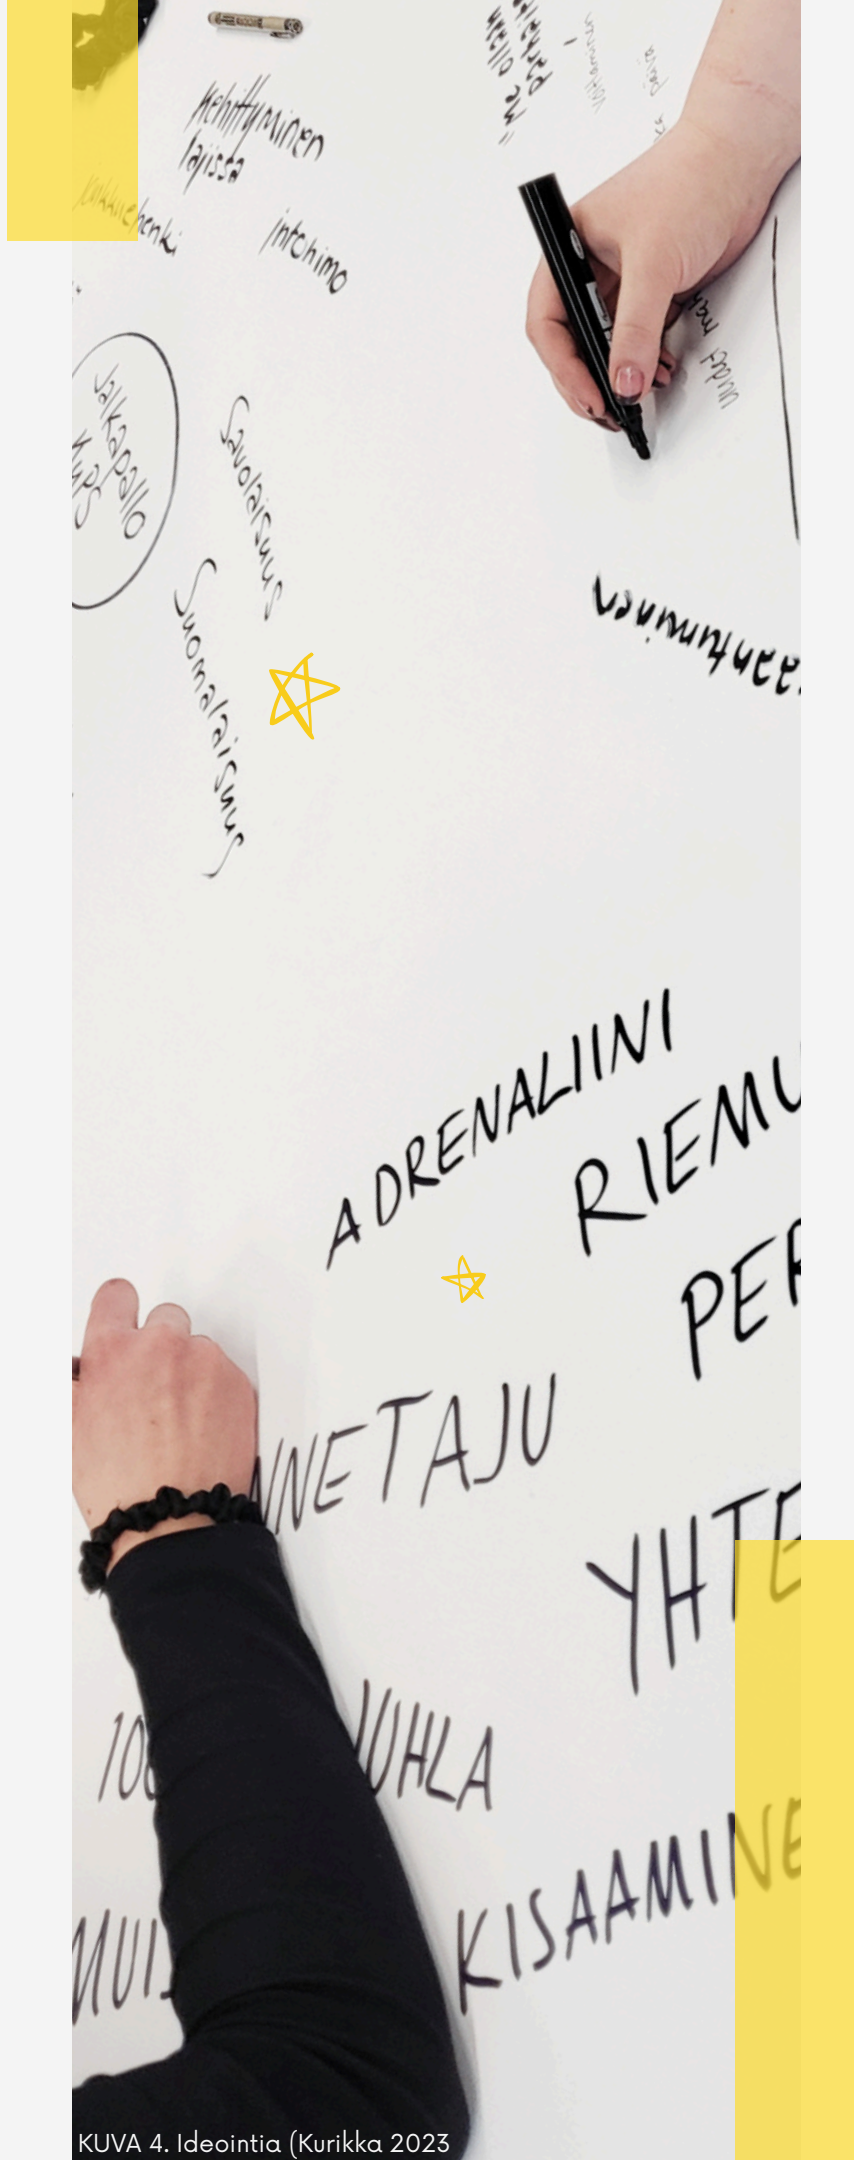 kehittyminen
lajissa
intohimo
Jalkapallo
KuPS
Savolaisuus
Suomalaisuus
uudet
ADRENALIINI
RIEMU
PER
NNETAJU
YHTE
10
JUHLA
MUIS
KISAAMINE
KUVA 4. Ideointia (Kurikka 2023